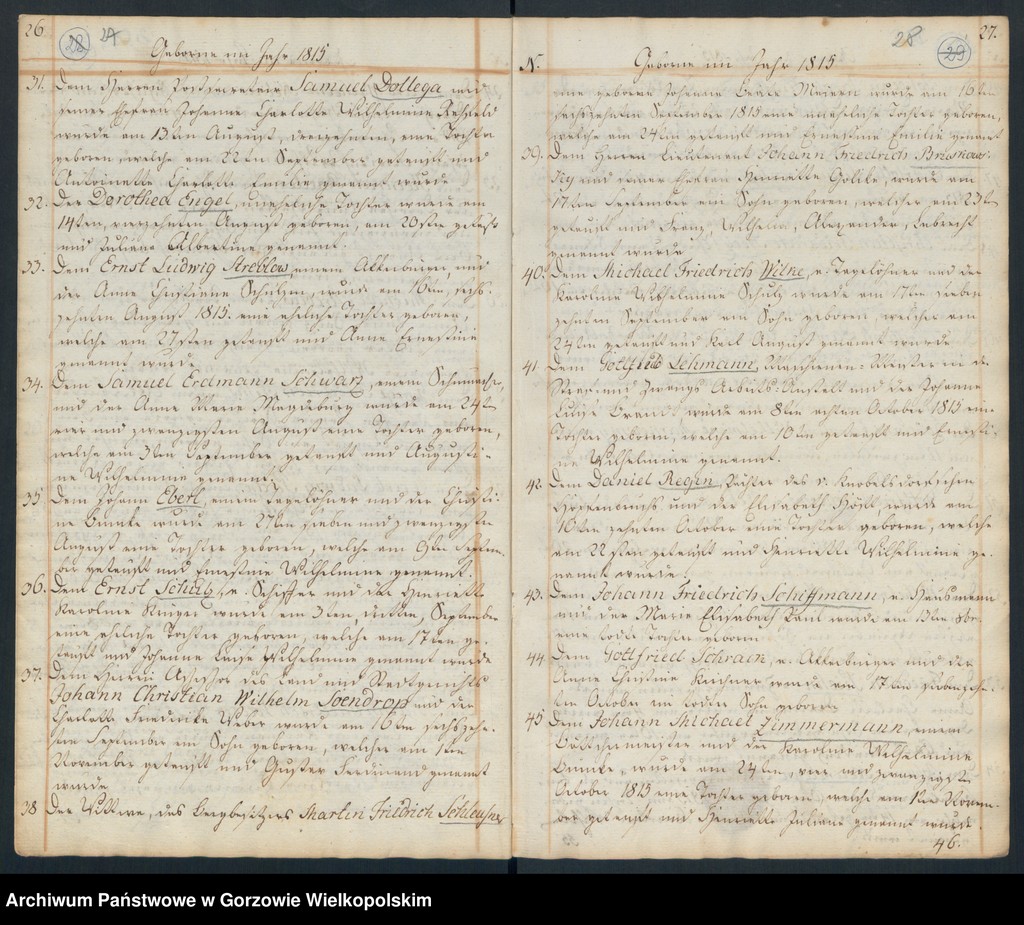 26.
28 27
Geborne im Jahr 1815
31. Dem Herrn Postsecretair Samuel Dollega und
seiner Ehefrau Johanne Charlotte Wilhelmine
wurde am 13ten August, dreizehnten, eine Tochter
geboren, welche am 22ten September getauft und
Antoinette Charlotte Emilie genannt wurde
32. Der Dorothea Engel, uneheliche Tochter wurde am
14ten, vierzehnten August geboren, am 20sten getauft
und Juliane Albertine genannt.
33. Dem Ernst Ludwig Streblow, einem Ackerbürger, und
der Anne Christiane Schulzin, wurde am 16ten, sechs-
zehnten August 1815. eine eheliche Tochter geboren,
welche am 27sten getauft und Anne Ernestine
genannt wurde
34. Dem Samuel Erdmann Schwarz, einem Schumacher,
und der Anne Marie Magdeburg wurde am 24ten
vier und zwanzigsten August eine Tochter geboren,
welche am 3ten September getauft und Augusti-
ne Wilhelmine genannt.
35. Dem Johann Ebert, einem Tagelöhner und der Christi-
ne wurde am 27ten sieben und zwanzigsten
August eine Tochter geboren, welche am 9ten Septem-
ber getauft und Ernestine Wilhelmine genannt.
36. Dem Ernst Schulz, e. Schiffer und der Henriette
Karoline wurde am 3ten, dritten, September
eine eheliche Tochter geboren, welche am 17ten ge-
tauft und Johanne Luise Wilhelmine genannt wurde
37. Dem Herrn Assessor des Land und Stadtgerichts
Johann Christian Wilhelm Soendrop und der
Charlotte Friedericke Weber wurde am 16ten sechszehn-
ten September ein Sohn geboren, welcher am 1ten
November getauft und Gustav Ferdinand genannt
wurde
38 Der Wittwe, des Bergbesitzers Martin Fridrich Schleusner
28 29 27.
N. Geborne im Jahr 1815
eine geborne Johanne Meiern wurde am 16ten
sechszehnten September 1815 eine uneheliche Tochter geboren,
welche am 24ten getauft und Ernestine Emilie genannt
39. Dem Herrn Lieutenant Johann Friedrich
und seiner Ehefrau Henriette wurde am
17ten September ein Sohn geboren, welcher am 23ten
getauft und Franz, Wilhelm, Alexander, Lebrecht
genannt wurde
40. Dem Michael Friedrich Wilke, e. Tagelöhner und der
Karoline Wilhelmine Schulz wurde am 17ten sieben-
zehnten September ein Sohn geboren, welcher am
24ten getauft und Karl August genannt wurde
41. Dem Gottfried Lehmann, Maschienen-Meister in der
Straf und Zwangs Arbeits-Anstalt und der Johanne
Luise Brandt wurde am 8ten achten October 1815 ein
Tochter geboren, welche am 10ten getauft und Ernesti-
ne Wilhelmine genannt.
42. Dem Daniel Regin, Pächter des v. Knobelsdorfschen
und der Elisabeth wurde am
10ten zehnten October eine Tochter geboren, welche
am 22sten getauft und Henriette Wilhelmine ge-
nannt wurde.
43. Dem Johann Friedrich Schiffmann, e. Hausmann
und der Marie Elisabeth Paul wurde am 13ten
eine todte Tochter geboren
44. Dem Gottfried Schrain, e. Ackerbürger und der
Anne Christine Kirchner wurde am 17ten siebenzehn-
ten October ein todter Sohn geboren
45 Dem Johann Michael Zimmermann, einem
Böttchermeister und der Karoline Wilhelmine
wurde am 24ten, vier und zwanzigsten
October 1815 eine Tochter geboren, welche am 1ten Novem-
ber getauft und Henriette Juliane genannt wurde.
46.
Archiwum Państwowe w Gorzowie Wielkopolskim